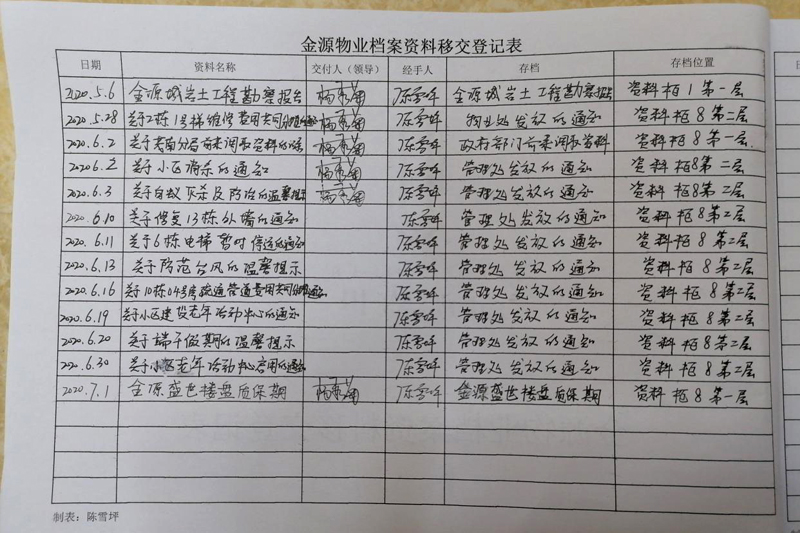 金源物业档案资料移交登记表
日期 资料名称 交付人（领导） 经手人 存档 存档位置
2020.5.6 金源城岩土工程勘察报告 陈雪坪 金源城岩土工程勘察报告 资料柜1第一层
2020.5.28 关于2栋1号梯维修费用共同分摊的通知 陈雪坪 物业处发放的通知 资料柜8第二层
2020.6.2 关于 分局前来调取资料的 陈雪坪 政府部门前来调取资料 资料柜8第一层
2020.6.2 关于小区消杀的通知 陈雪坪 管理处发放的通知 资料柜8第二层
2020.6.3 关于白蚁灭杀及防治的温馨提示 陈雪坪 管理处发放的通知 资料柜8第二层
2020.6.10 关于修复13栋外墙的通知 陈雪坪 管理处发放的通知 资料柜8第二层
2020.6.11 关于6栋电梯暂时停运的通知 陈雪坪 管理处发放的通知 资料柜8第二层
2020.6.13 关于防范台风的温馨提示 陈雪坪 管理处发放的通知 资料柜8第二层
2020.6.16 关于10栋04号房疏通管道费用共同分摊通知 陈雪坪 管理处发放的通知 资料柜8第二层
2020.6.19 关于小区建设老年活动中心的通知 陈雪坪 管理处发放的通知 资料柜8第二层
2020.6.20 关于端午假期的温馨提示 陈雪坪 管理处发放的通知 资料柜8第二层
2020.6.30 关于小区老年活动中心启用的通知 陈雪坪 管理处发放的通知 资料柜8第二层
2020.7.1 金源盛世楼盘质保期 陈雪坪 金源盛世楼盘质保期 资料柜8第一层
制表：陈雪坪